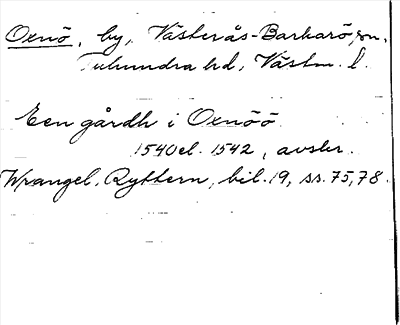 Oxnö, by, Västerås-Barkarö sn.
Tuhundra hd, Västm. l.
Een gårdh i Oxnöö
1540 el. 1542, avskr.
Wrangel, Ryttern, bil. 19, ss. 75, 78.